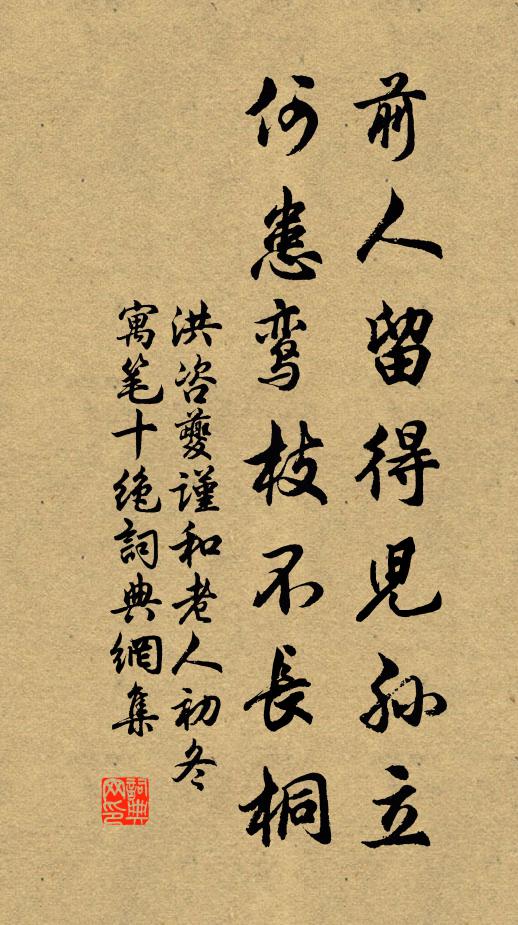 前人留得児孙立
何患鸾枝不長桐
洪咨夔謹和老人初冬
寓笔十绝詞典網集
詞典网印